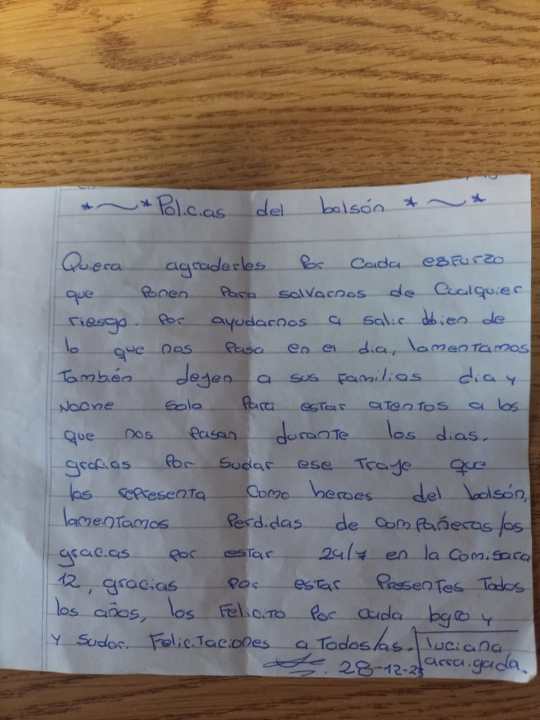 *~* Policias del bolsón *~*
Quera agraderles por cada esfurzo
que ponen para salvarnos de cualquier
riesgo. Por ayudarnos a salir bien de
lo que nos pasa en el dia, lamentamos
También dejen a sus familias dia y
Noche solo para estar atentos a los
que nos pasan durante los dias.
gracias por sudar ese traje que
los representa como heroes del bolsón,
lamentamos perdidas de compañeros/as
gracias por estar 24/7 en la comisara
12, gracias por estar presentes todos
los años, los felicito por cada logro y
y sudor. Felicitaciones a todos/as.
luciana
arragada.
28-12-23